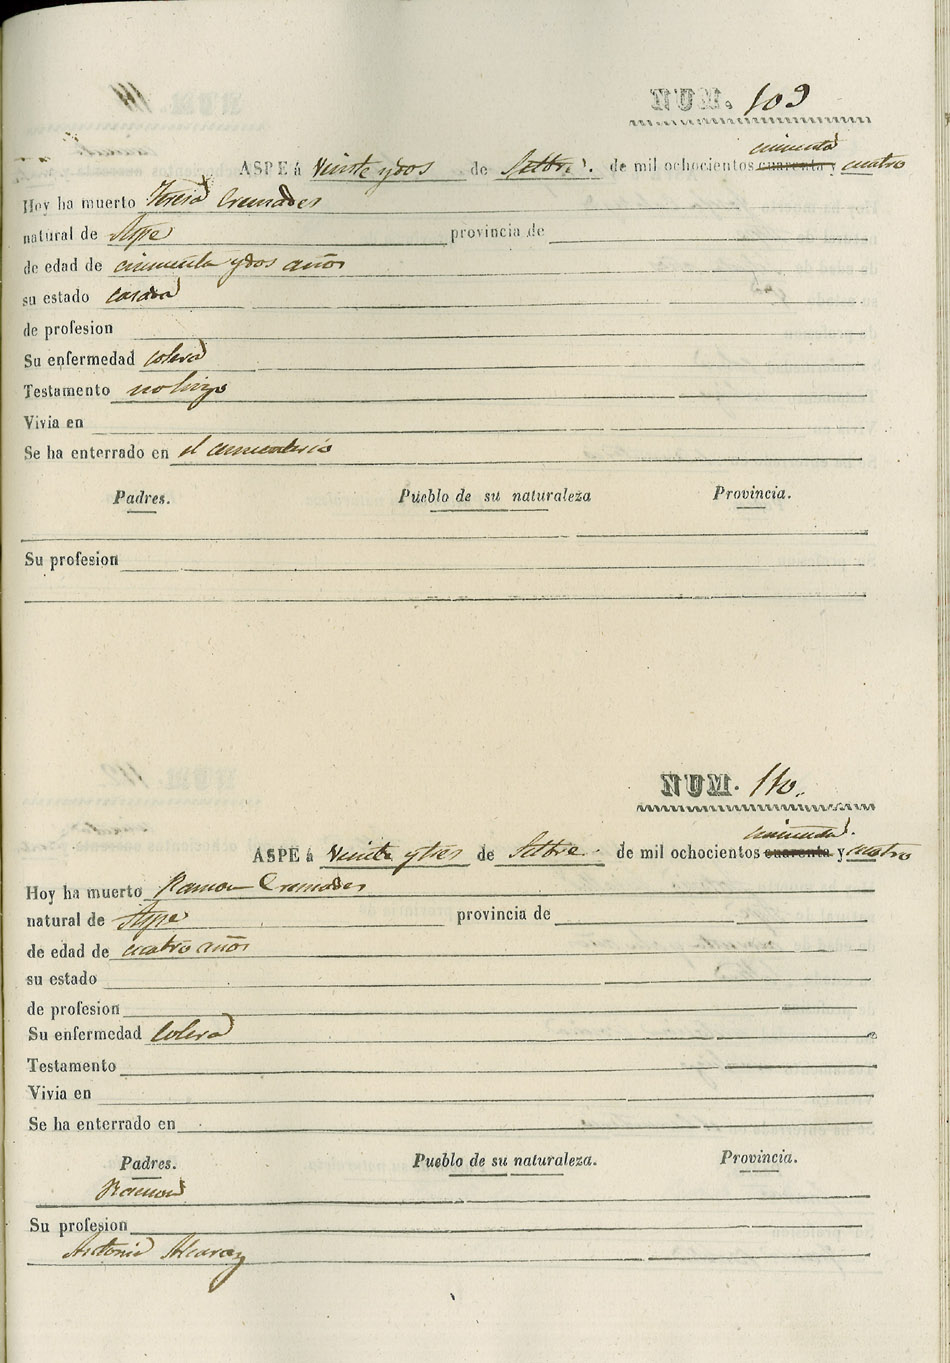 NUM. 109
cincuenta
ASPE á Veinte y dos de Setbre. de mil ochocientos cuarenta y cuatro
Hoy ha muerto Teresa Cremades
natural de Aspe provincia de
de edad de cincuenta y dos años
su estado casada
de profesion
Su enfermedad colera
Testamento no hizo
Vivia en
Se ha enterrado en el cementerio
Padres. Pueblo de su naturaleza Provincia.
Su profesion
NUM. 110.
cincuenta
ASPE á Veinte y tres de Setbre. de mil ochocientos cuarenta y cuatro
Hoy ha muerto Ramon Cremades
natural de Aspe provincia de
de edad de cuatro años
su estado
de profesion
Su enfermedad Colera
Testamento
Vivia en
Se ha enterrado en
Padres. Pueblo de su naturaleza. Provincia.
Ramon
Su profesion
Antonia Alcaraz